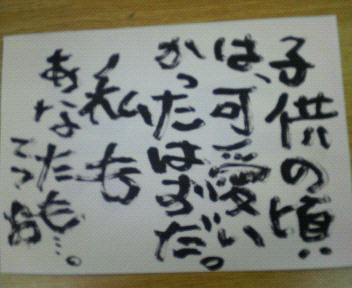 子供の頃
は、可愛い
かったはずだ。
私も
あなたも…。